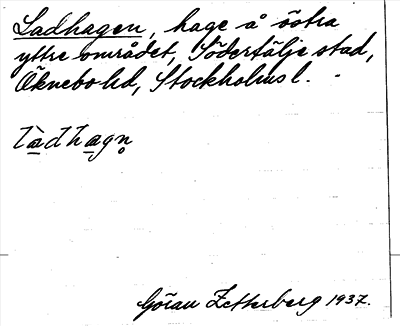 Ladhagen, hage å östra
yttre området, Södertälje stad,
Öknebo hd, Stockholms l.
làdhagn̥
Göran Zetterberg 1937.